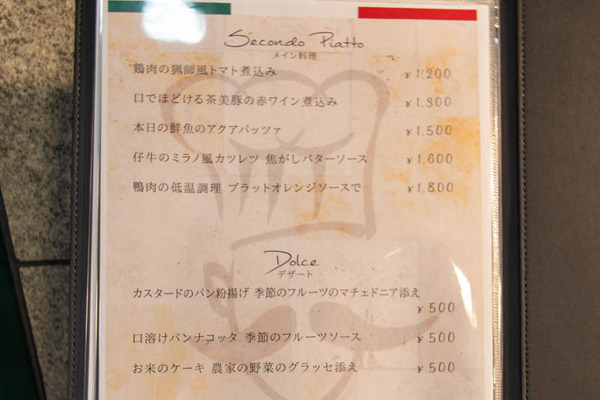 Secondo Piatto
メイン料理
鶏肉の猟師風トマト煮込み ¥1,200
口でほどける茶美豚の赤ワイン煮込み ¥1,300
本日の鮮魚のアクアパッツァ ¥1,500
仔牛のミラノ風カツレツ 焦がしバターソース ¥1,600
鴨肉の低温調理 ブラットオレンジソースで ¥1,800
Dolce
デザート
カスタードのパン粉揚げ 季節のフルーツのマチェドニア添え
¥500
口溶けパンナコッタ 季節のフルーツソース ¥500
お米のケーキ 農家の野菜のグラッセ添え ¥500